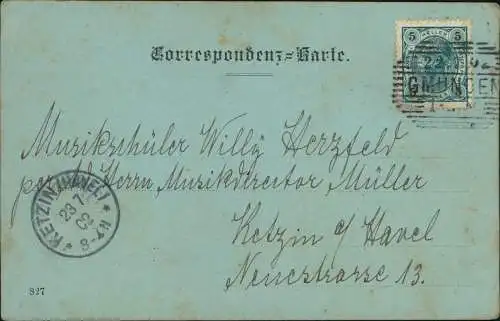 Correspondenz-Karte.
5 HELLER 5
22 02
GMUNDEN
Musikschüler Willy Herzfeld
per Ad Herrn Musikdirector Müller
Ketzin a/Havel
Neuestrasse 13.
KETZIN (HAVEL)
23 7
02
8-9N
827